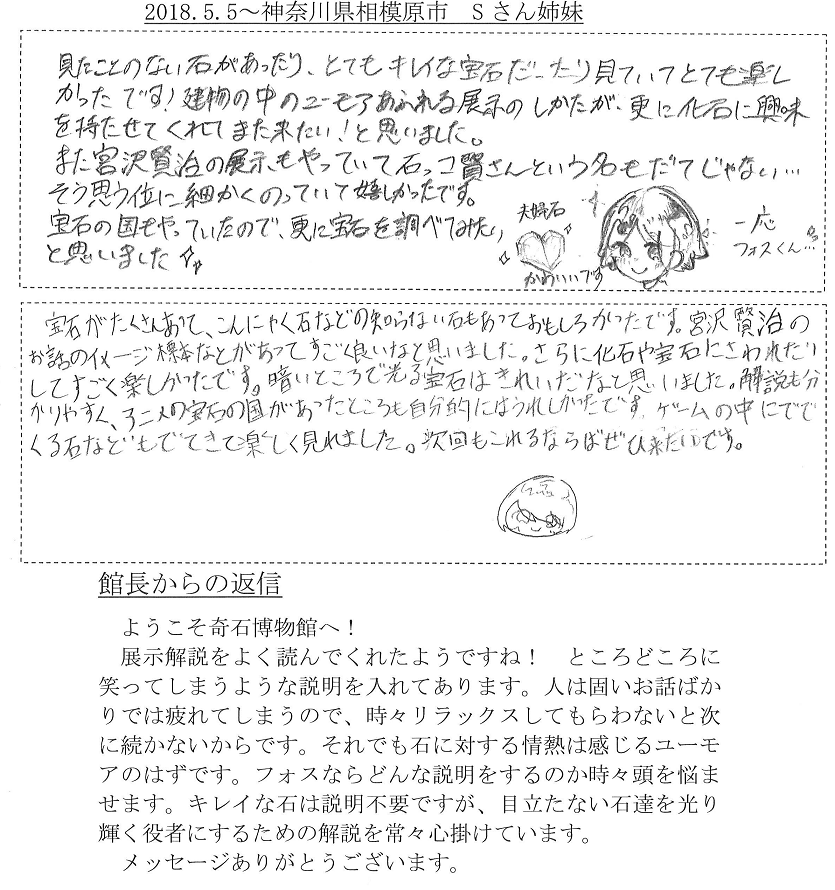 2018.5.5～神奈川県相模原市　Sさん姉妹
見たことのない石があったり、とてもキレイな宝石だったり見ていてとても楽し
かったです！建物の中のユーモアあふれる展示のしかたが、更に化石に興味
を持たせてくれてまた来たい！と思いました。
また宮沢賢治の展示もやっていて石っコ賢さんという名もだてじゃない…
そう思う位に細かくのっていて嬉しかったです。
宝石の国もやっていたので、更に宝石を調べてみたい
と思いました
夫婦石
かわいいです
一応
フォスくん…
宝石がたくさんあって、こんにゃく石などの知らない石もあっておもしろかったです。宮沢賢治の
お話のイメージ標本などがあってすごく良いなと思いました。さらに化石や宝石にさわれたり
してすごく楽しかったです。暗いところで光る宝石はきれいだなと思いました。解説も分
かりやすく、宝石の国があったところも自分的にはうれしかったです。ゲームの中にでで
くる石などもでてきて楽しく見れました。次回もこれるならばぜひ来たいです。
館長からの返信
ようこそ奇石博物館へ！
展示解説をよく読んでくれたようですね！　ところどころに
笑ってしまうような説明を入れてあります。人は固いお話ばか
りでは疲れてしまうので、時々リラックスしてもらわないと次
に続かないからです。それでも石に対する情熱は感じるユーモ
アのはずです。フォスならどんな説明をするのか時々頭を悩ま
せます。キレイな石は説明不要ですが、目立たない石達を光り
輝く役者にするための解説を常々心掛けています。
メッセージありがとうございます。